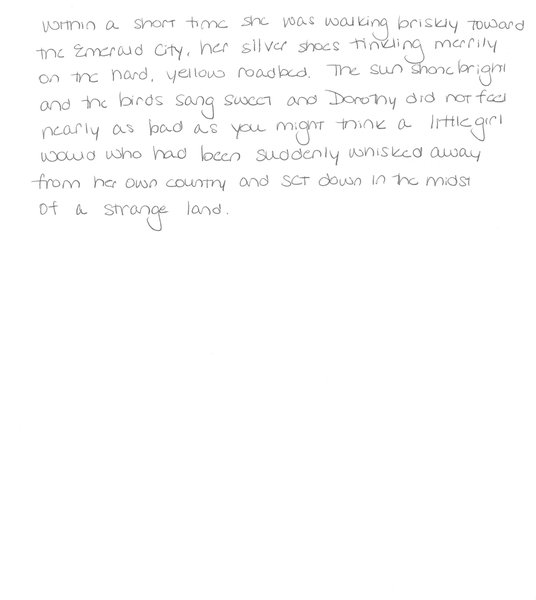 Within a short time she was walking briskly toward
the Emerald City, her silver shoes tinkling merrily
on the hard, yellow roadbed. The sun shone bright
and the birds sang sweet and Dorothy did not feel
nearly as bad as you might think a little girl
would who had been suddenly whisked away
from her own country and set down in the midst
of a strange land.